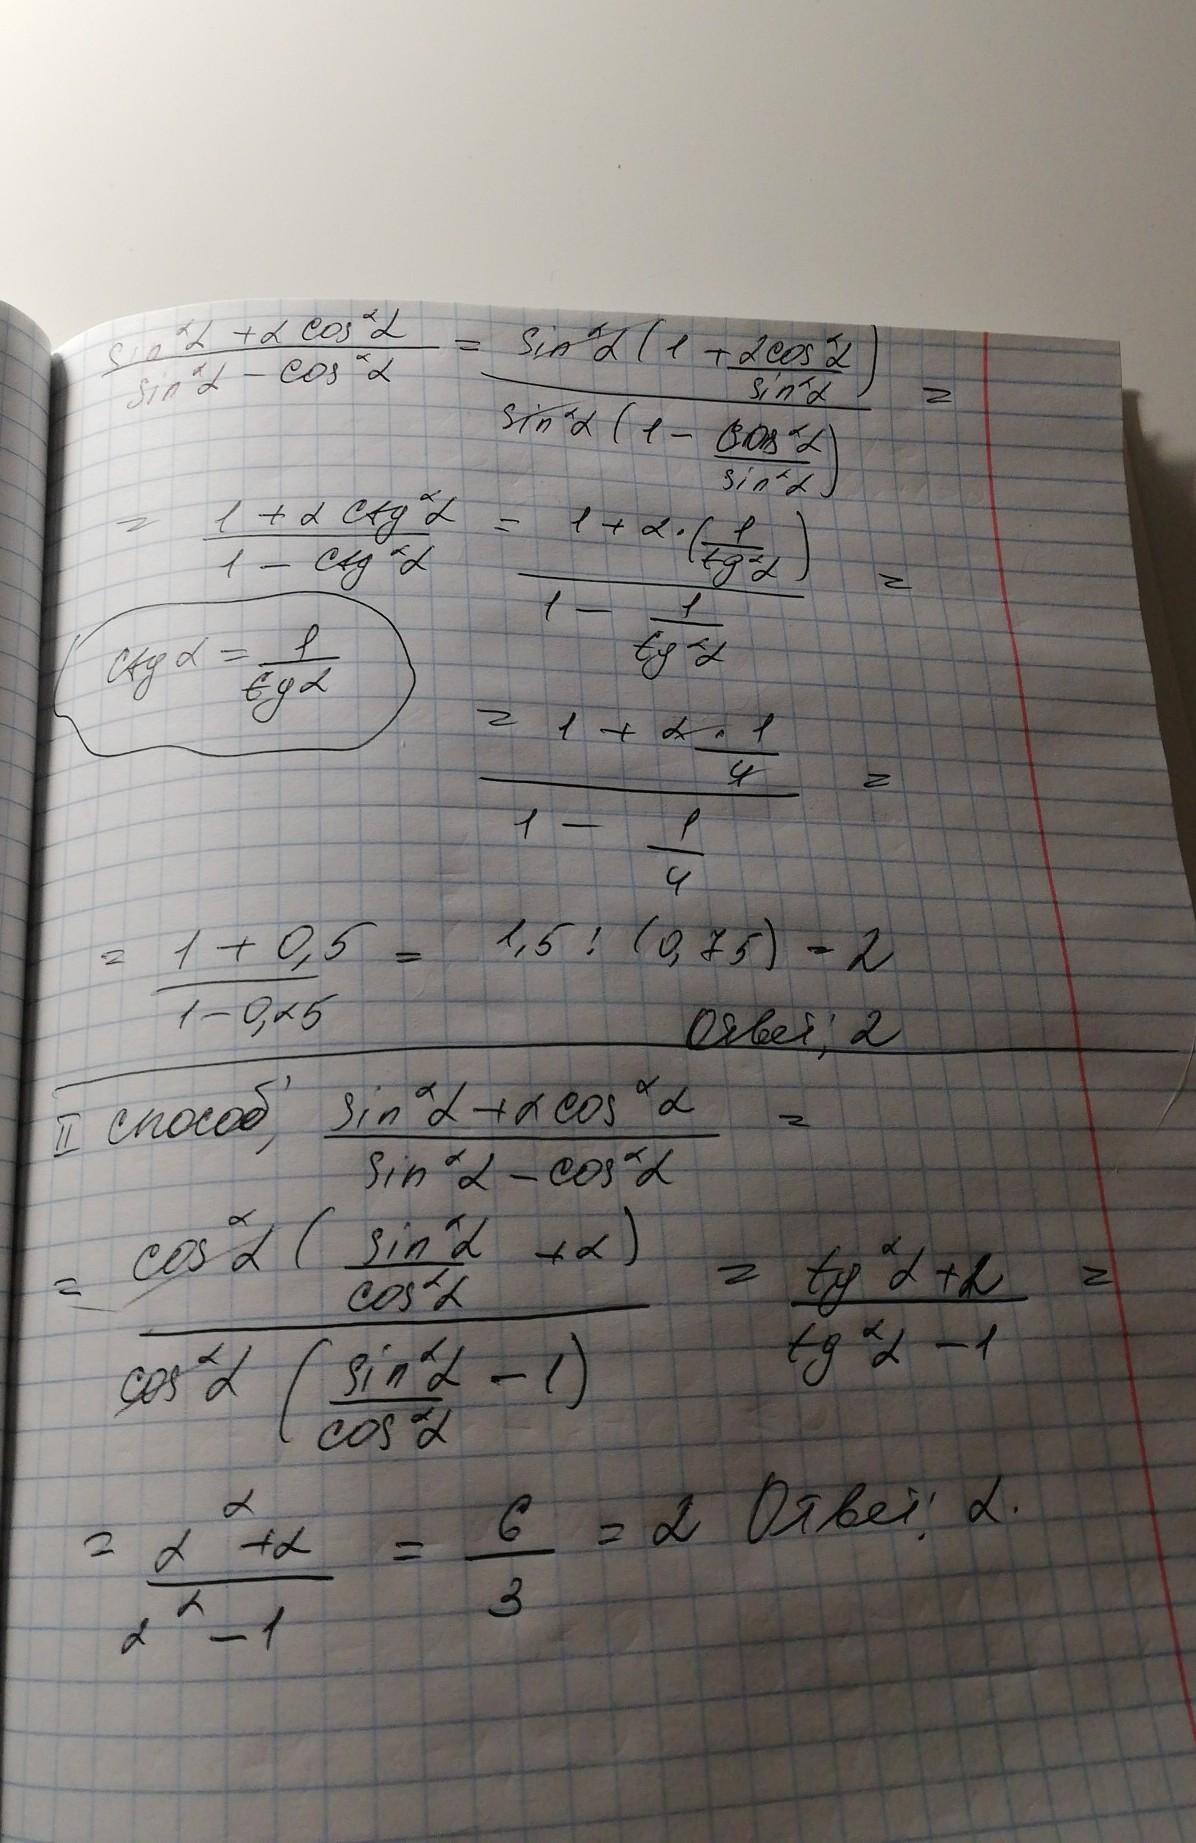 (sin²α + 2cos²α)/(sin²α − cos²α) = (sin²α(1 + 2cos²α/sin²α))/(sin²α(1 − cos²α/sin²α)) =
= (1 + 2ctg²α)/(1 − ctg²α) = (1 + 2·(1/tg²α))/(1 − 1/tg²α) =
ctgα = 1/tgα
= (1 + 2·1/4)/(1 − 1/4) =
= (1 + 0,5)/(1 − 0,25) = 1,5 : (0,75) = 2
Ответ: 2
II способ, (sin²α + 2cos²α)/(sin²α − cos²α) =
= (cos²α(sin²α/cos²α + 2))/(cos²α(sin²α/cos²α − 1)) = (tg²α + 2)/(tg²α − 1) =
= (2² + 2)/(2² − 1) = 6/3 = 2 Ответ: 2.